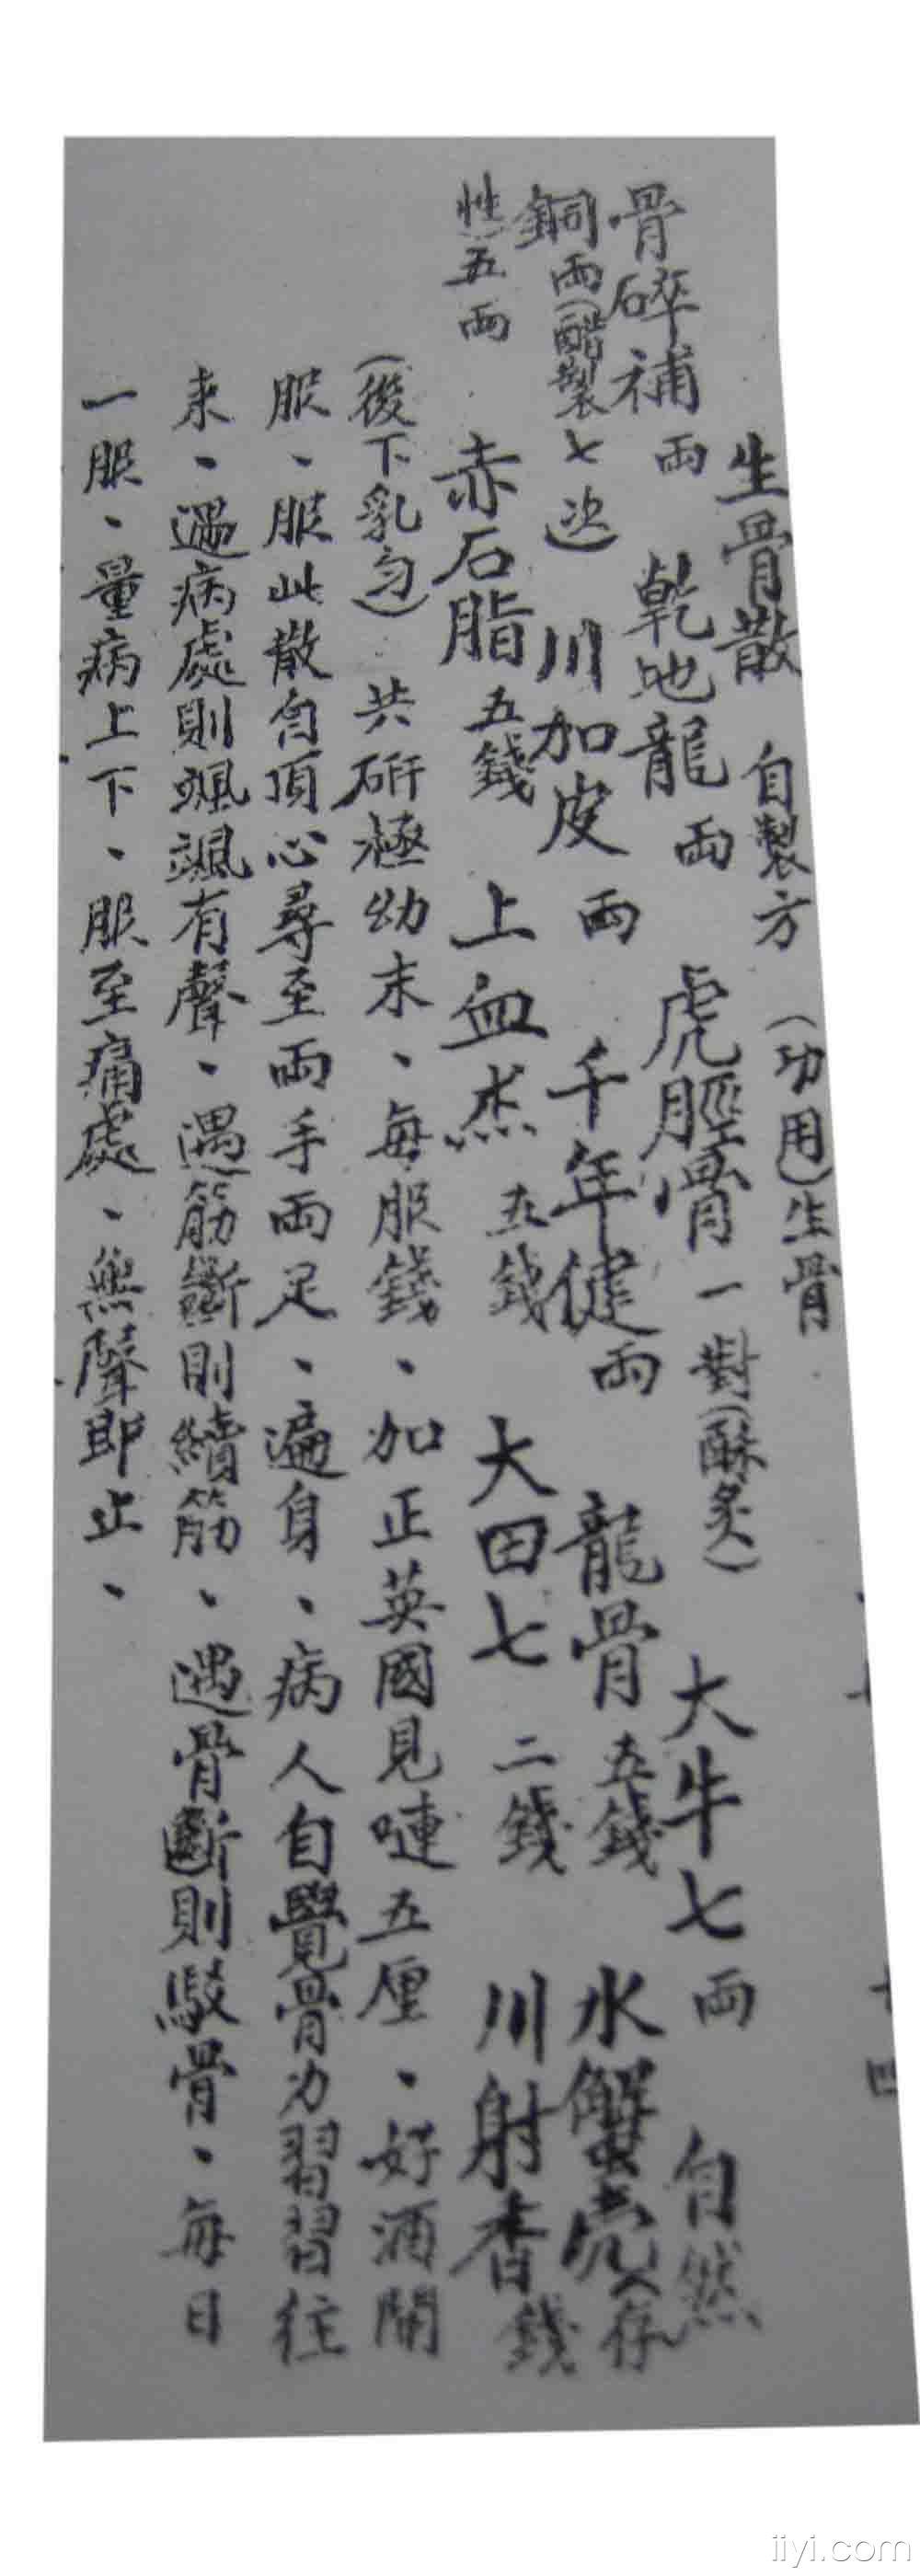 生骨散 自製方 (功用)生骨
骨碎補兩 乾地龍兩 虎脛骨一對(酥炙) 大牛七兩 自然
銅兩(醋製七次) 川加皮兩 千年健兩 龍骨五錢 水蟹壳(存
性)五兩 赤石脂五錢 上血杰五錢 大田七二錢 川射香錢
(後下乳勻)共研極幼末、每服錢、加正英國見嗹五厘、好酒開
服、服此散自頂心尋至兩手兩足、遍身、病人自覺骨力習習往
来、遇病處則颯颯有聲、遇筋斷則續筋、遇骨斷則駁骨、每日
一服、量病上下、服至痛處、無聲即止、
iiyi.com